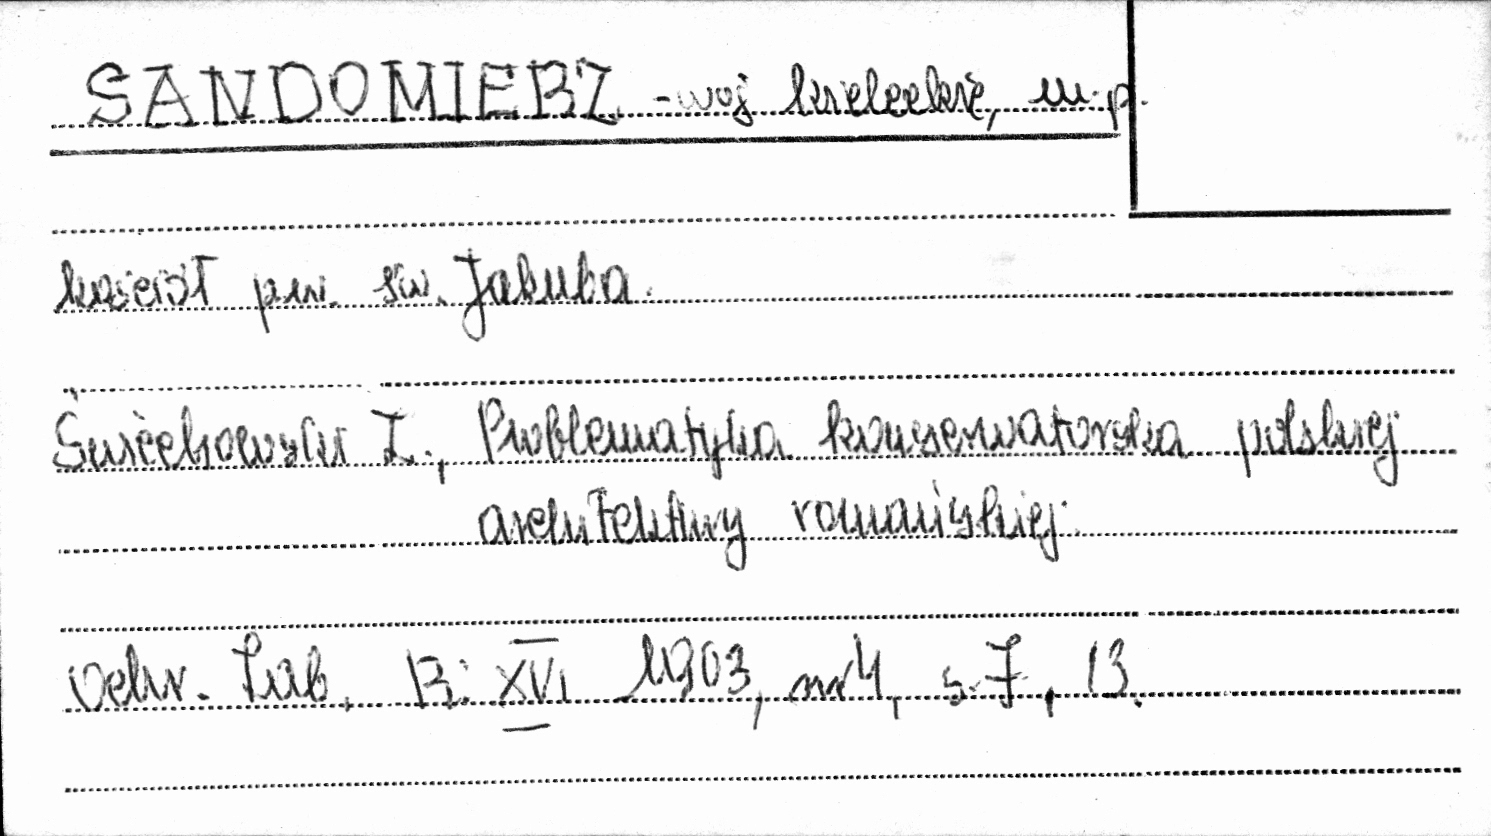 SANDOMIERZ - woj kieleckie, m.p.
kościół p.w. św. Jakuba.
Świechowski Z., Problematyka konserwatorska polskiej
architektury romańskiej.
Ochr. Zab. R: XVI 1963, nr 4, s. 7, 13.